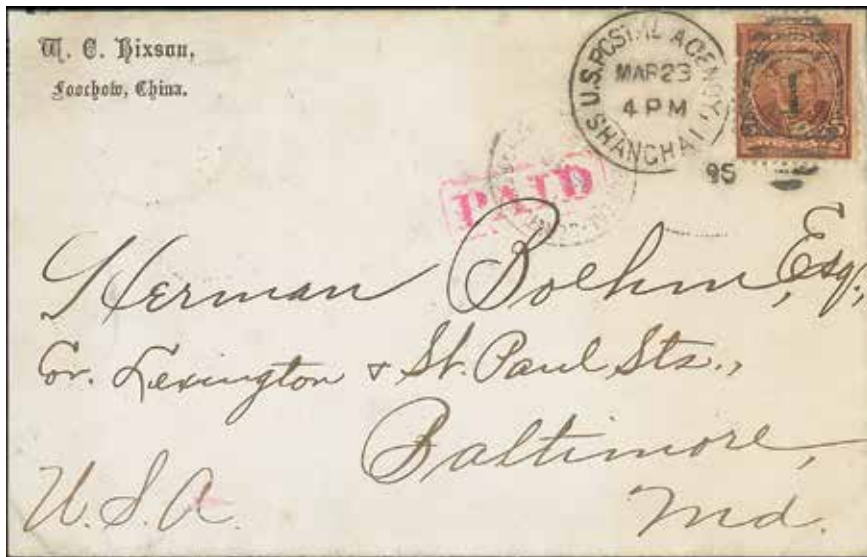 W. C. Hixson,
Foochow, China.
U.S. POSTAL AGENCY
MAR 23
4 PM
SHANGHAI
95
PAID
Herman Boehm, Esq.,
Cor. Lexington & St. Paul Sts.,
Baltimore,
Md.
U.S.A.